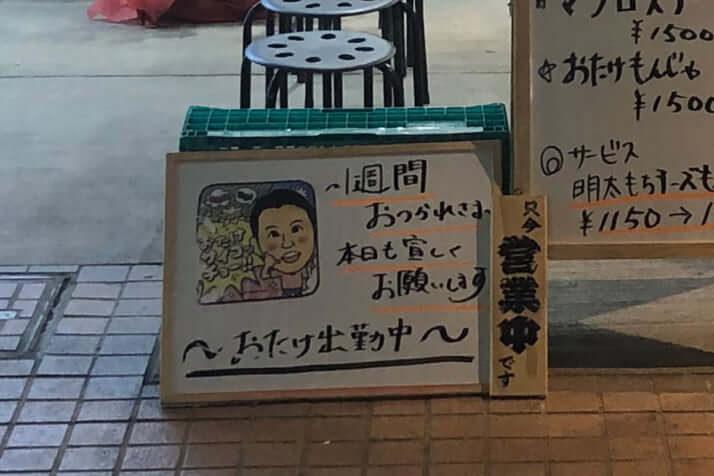 ～1週間
おつかれさま
本日も宣しく
お願いします
～おたけ出勤中～
只今
営業中
です
¥1500
☆おたけもんじゃ
¥1500
◎サービス
明太もちチーズも
¥1150→1